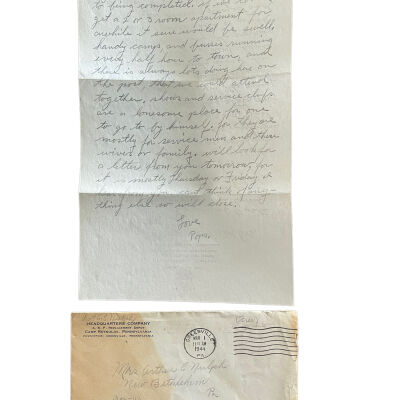 to being completed. if we could
get a 2 or 3 room apartment for
awhile it sure would be swell,
handy camp, and busses running
every half hour to town, and
there is always lots doing here on
the post that we could attend
together, shows and service clubs
are a lonesome place for one
to go to by himself, for they are
mostly for service men and there
wives or family. will look for
a letter from you tomorrow, for
it is mostly Thursday or Friday I
hear from you, can't think of any-
thing else so will close.
Love
Pops.
HEADQUARTERS COMPANY
A. G. F. REPLACEMENT DEPOT
CAMP REYNOLDS, PENNSYLVANIA
GREENVILLE, PENNSYLVANIA
GREENVILLE
MAR 1
11 AM
1944
PA.
Mrs Arthur E
New Bethlehem
Pa